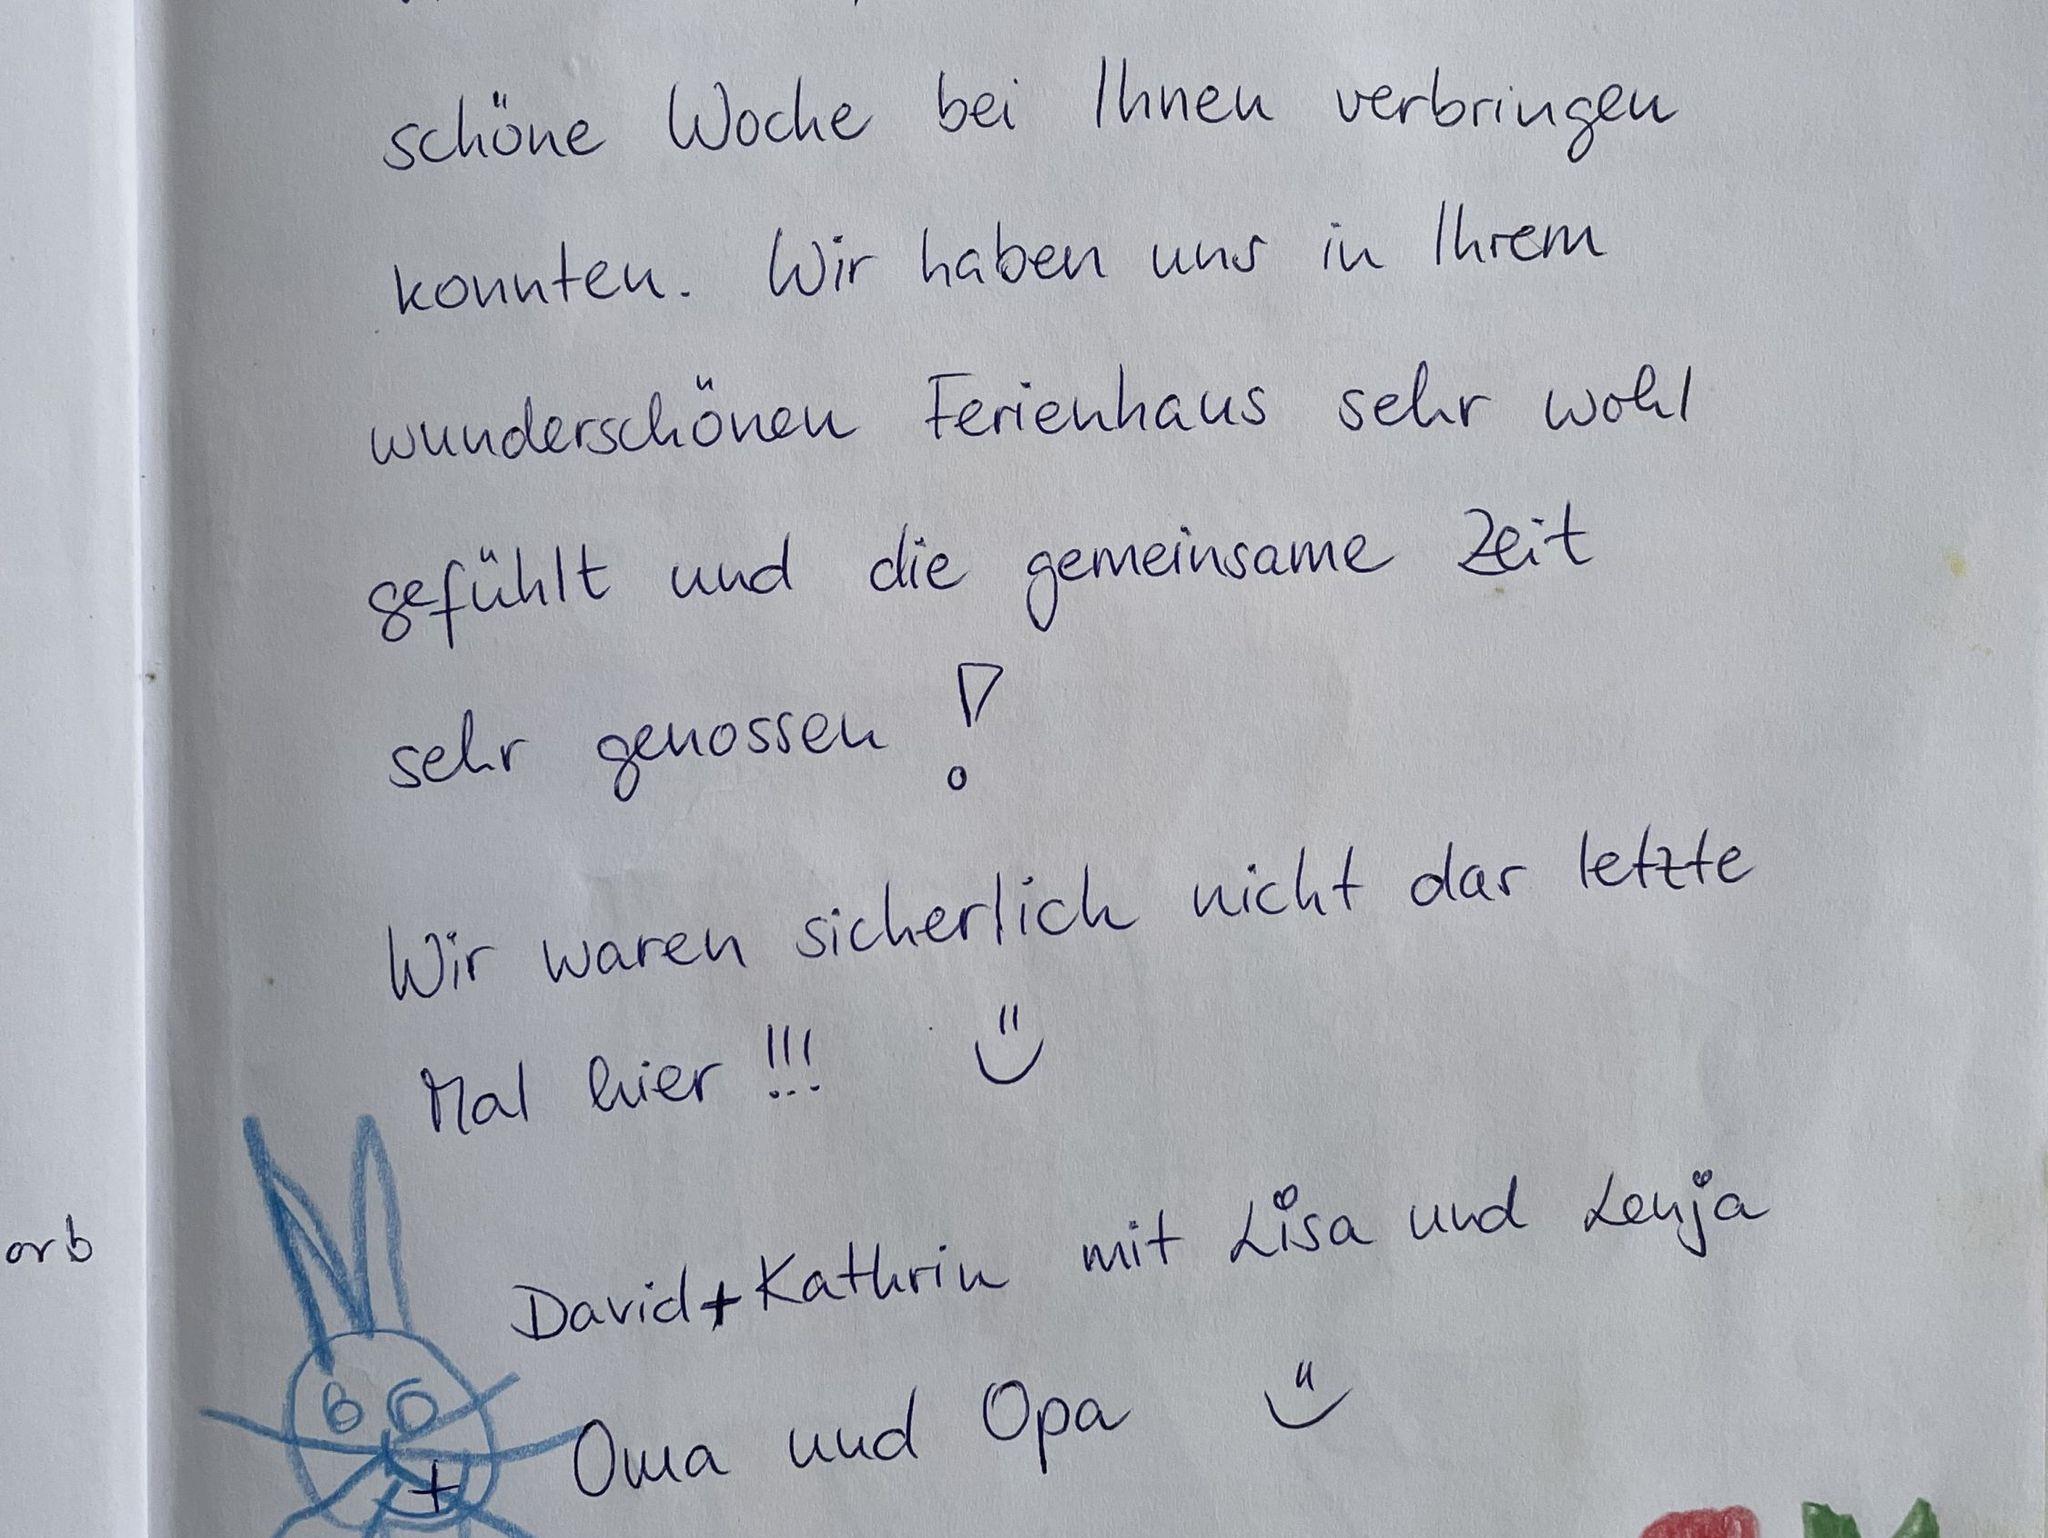 schöne Woche bei Ihnen verbringen
konnten. Wir haben uns in Ihrem
wunderschönen Ferienhaus sehr wohl
gefühlt und die gemeinsame Zeit
sehr genossen!
Wir waren sicherlich nicht das letzte
Mal hier!!!
orb
David + Kathrin mit Lisa und Lenja
+ Oma und Opa